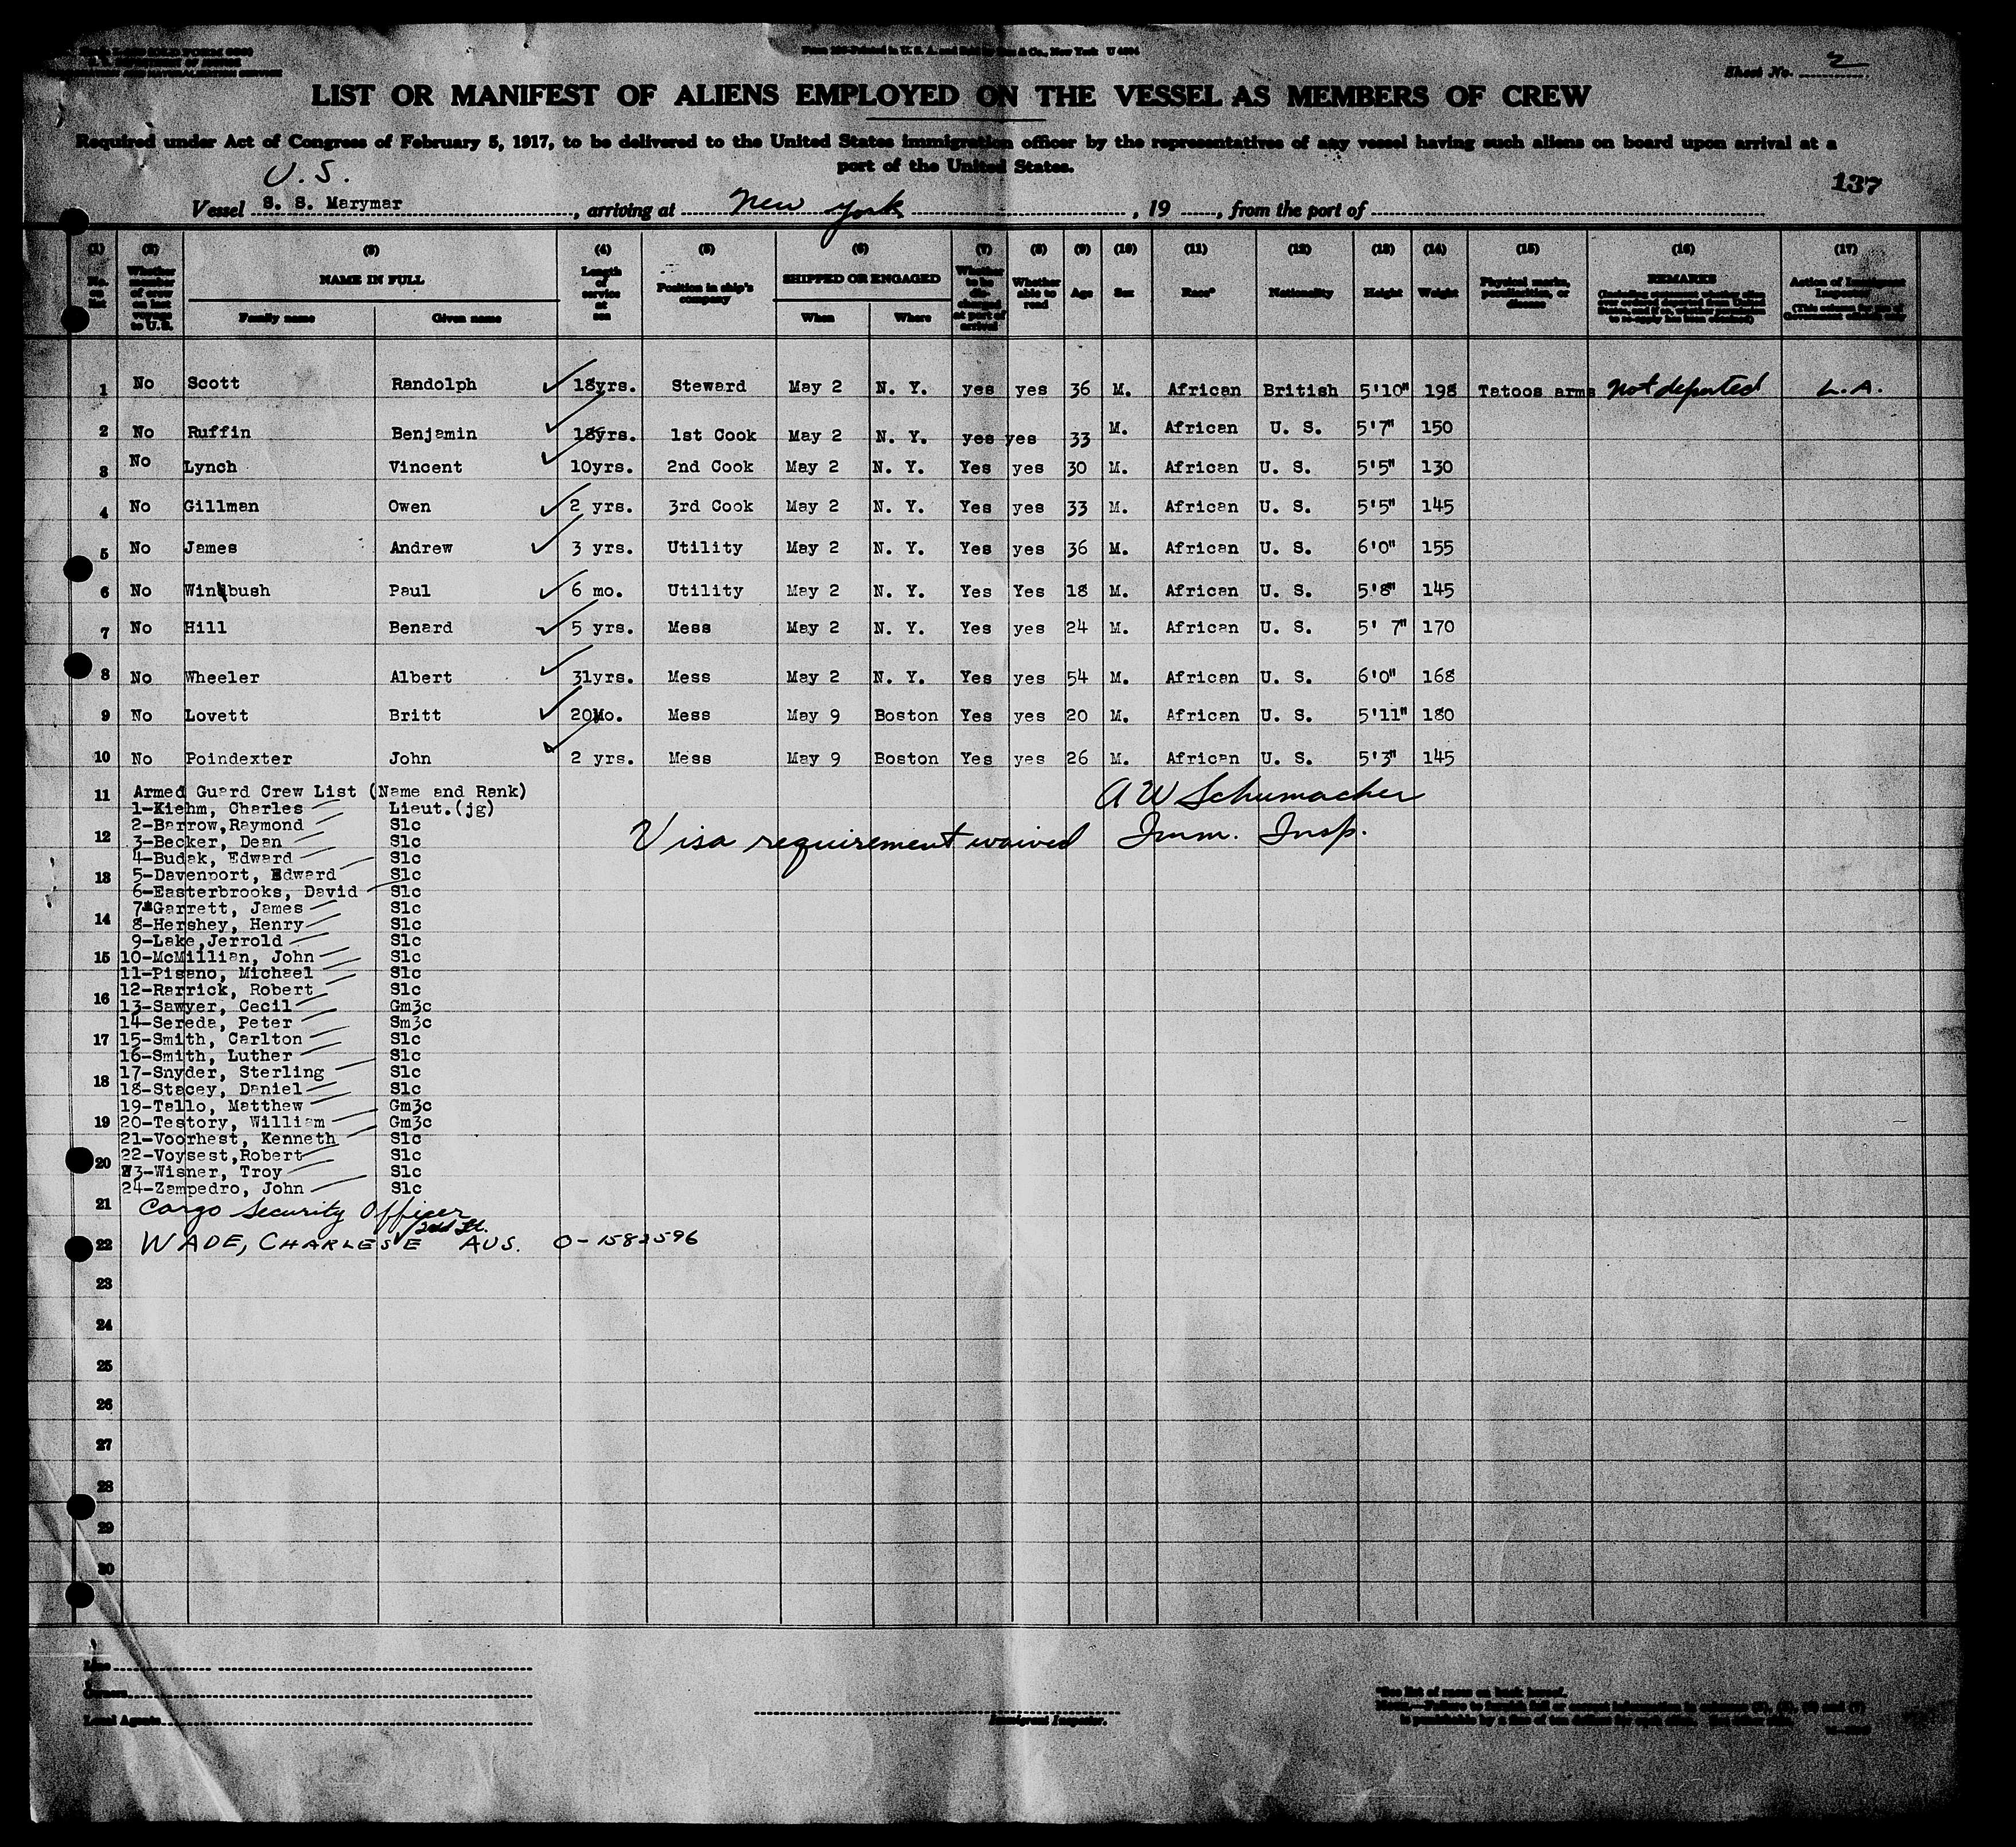 Sheet No. 2
LIST OR MANIFEST OF ALIENS EMPLOYED ON THE VESSEL AS MEMBERS OF CREW
Required under Act of Congress of February 5, 1917, to be delivered to the United States immigration officer by the representatives of any vessel having such aliens on board upon arrival at a
port of the United States.
U.S.
137
Vessel S. S. Marymar, arriving at New York, 19, from the port of
(1) (2) (3) (4) (5) (6) (7) (8) (9) (10) (11) (12) (13) (14) (15) (16) (17)
No. on list Whether member of crew on last voyage to U.S. NAME IN FULL Family name Given name Length of service at sea Position in ship's company SHIPPED OR ENGAGED When Where Whether to be discharged at port of arrival Whether able to read Age Sex Race* Nationality Height Weight Physical marks, peculiarities, or disease REMARKS Action of Immigrant Inspector
1 No Scott Randolph 18yrs. Steward May 2 N. Y. yes yes 36 M. African British 5'10" 198 Tatoos arms Not deported L.A.
2 No Ruffin Benjamin 18yrs. 1st Cook May 2 N. Y. yes yes 33 M. African U. S. 5'7" 150
3 No Lynch Vincent 10yrs. 2nd Cook May 2 N. Y. Yes yes 30 M. African U. S. 5'5" 130
4 No Gillman Owen 2 yrs. 3rd Cook May 2 N. Y. Yes yes 33 M. African U. S. 5'5" 145
5 No James Andrew 3 yrs. Utility May 2 N. Y. Yes yes 36 M. African U. S. 6'0" 155
6 No Windbush Paul 6 mo. Utility May 2 N. Y. Yes Yes 18 M. African U. S. 5'8" 145
7 No Hill Benard 5 yrs. Mess May 2 N. Y. Yes yes 24 M. African U. S. 5' 7" 170
8 No Wheeler Albert 31yrs. Mess May 2 N. Y. Yes yes 54 M. African U. S. 6'0" 168
9 No Lovett Britt 20Mo. Mess May 9 Boston Yes yes 20 M. African U. S. 5'11" 180
10 No Poindexter John 2 yrs. Mess May 9 Boston Yes yes 26 M. African U. S. 5'3" 145
11 Armed Guard Crew List (Name and Rank)
A W Schumacher
1-Kiehm, Charles Lieut.(jg)
2-Barrow,Raymond S1c
Visa requirement waived Imm. Insp.
12 3-Becker, Dean S1c
4-Budak, Edward S1c
13 5-Davenport, Edward S1c
6-Easterbrooks, David S1c
7-Garrett, James S1c
14 8-Hershey, Henry S1c
9-Lake,Jerrold S1c
15 10-McMillian, John S1c
11-Pisano, Michael S1c
12-Rarrick, Robert S1c
16 13-Sawyer, Cecil Gm3c
14-Sereda, Peter Sm3c
17 15-Smith, Carlton S1c
16-Smith, Luther S1c
17-Snyder, Sterling S1c
18 18-Stacey, Daniel S1c
19-Tallo, Matthew Gm3c
19 20-Testory, William Gm3c
21-Voorhest, Kenneth S1c
22-Voysest,Robert S1c
20 23-Wisner, Troy S1c
24-Zampedro, John S1c
21 Cargo Security Officer
2nd Lt.
22 WADE, CHARLES E AUS. O-1582596
23
24
25
26
27
28
29
30
Line
Owners
Local Agents
Immigrant Inspector.
*See list of races on back hereof.